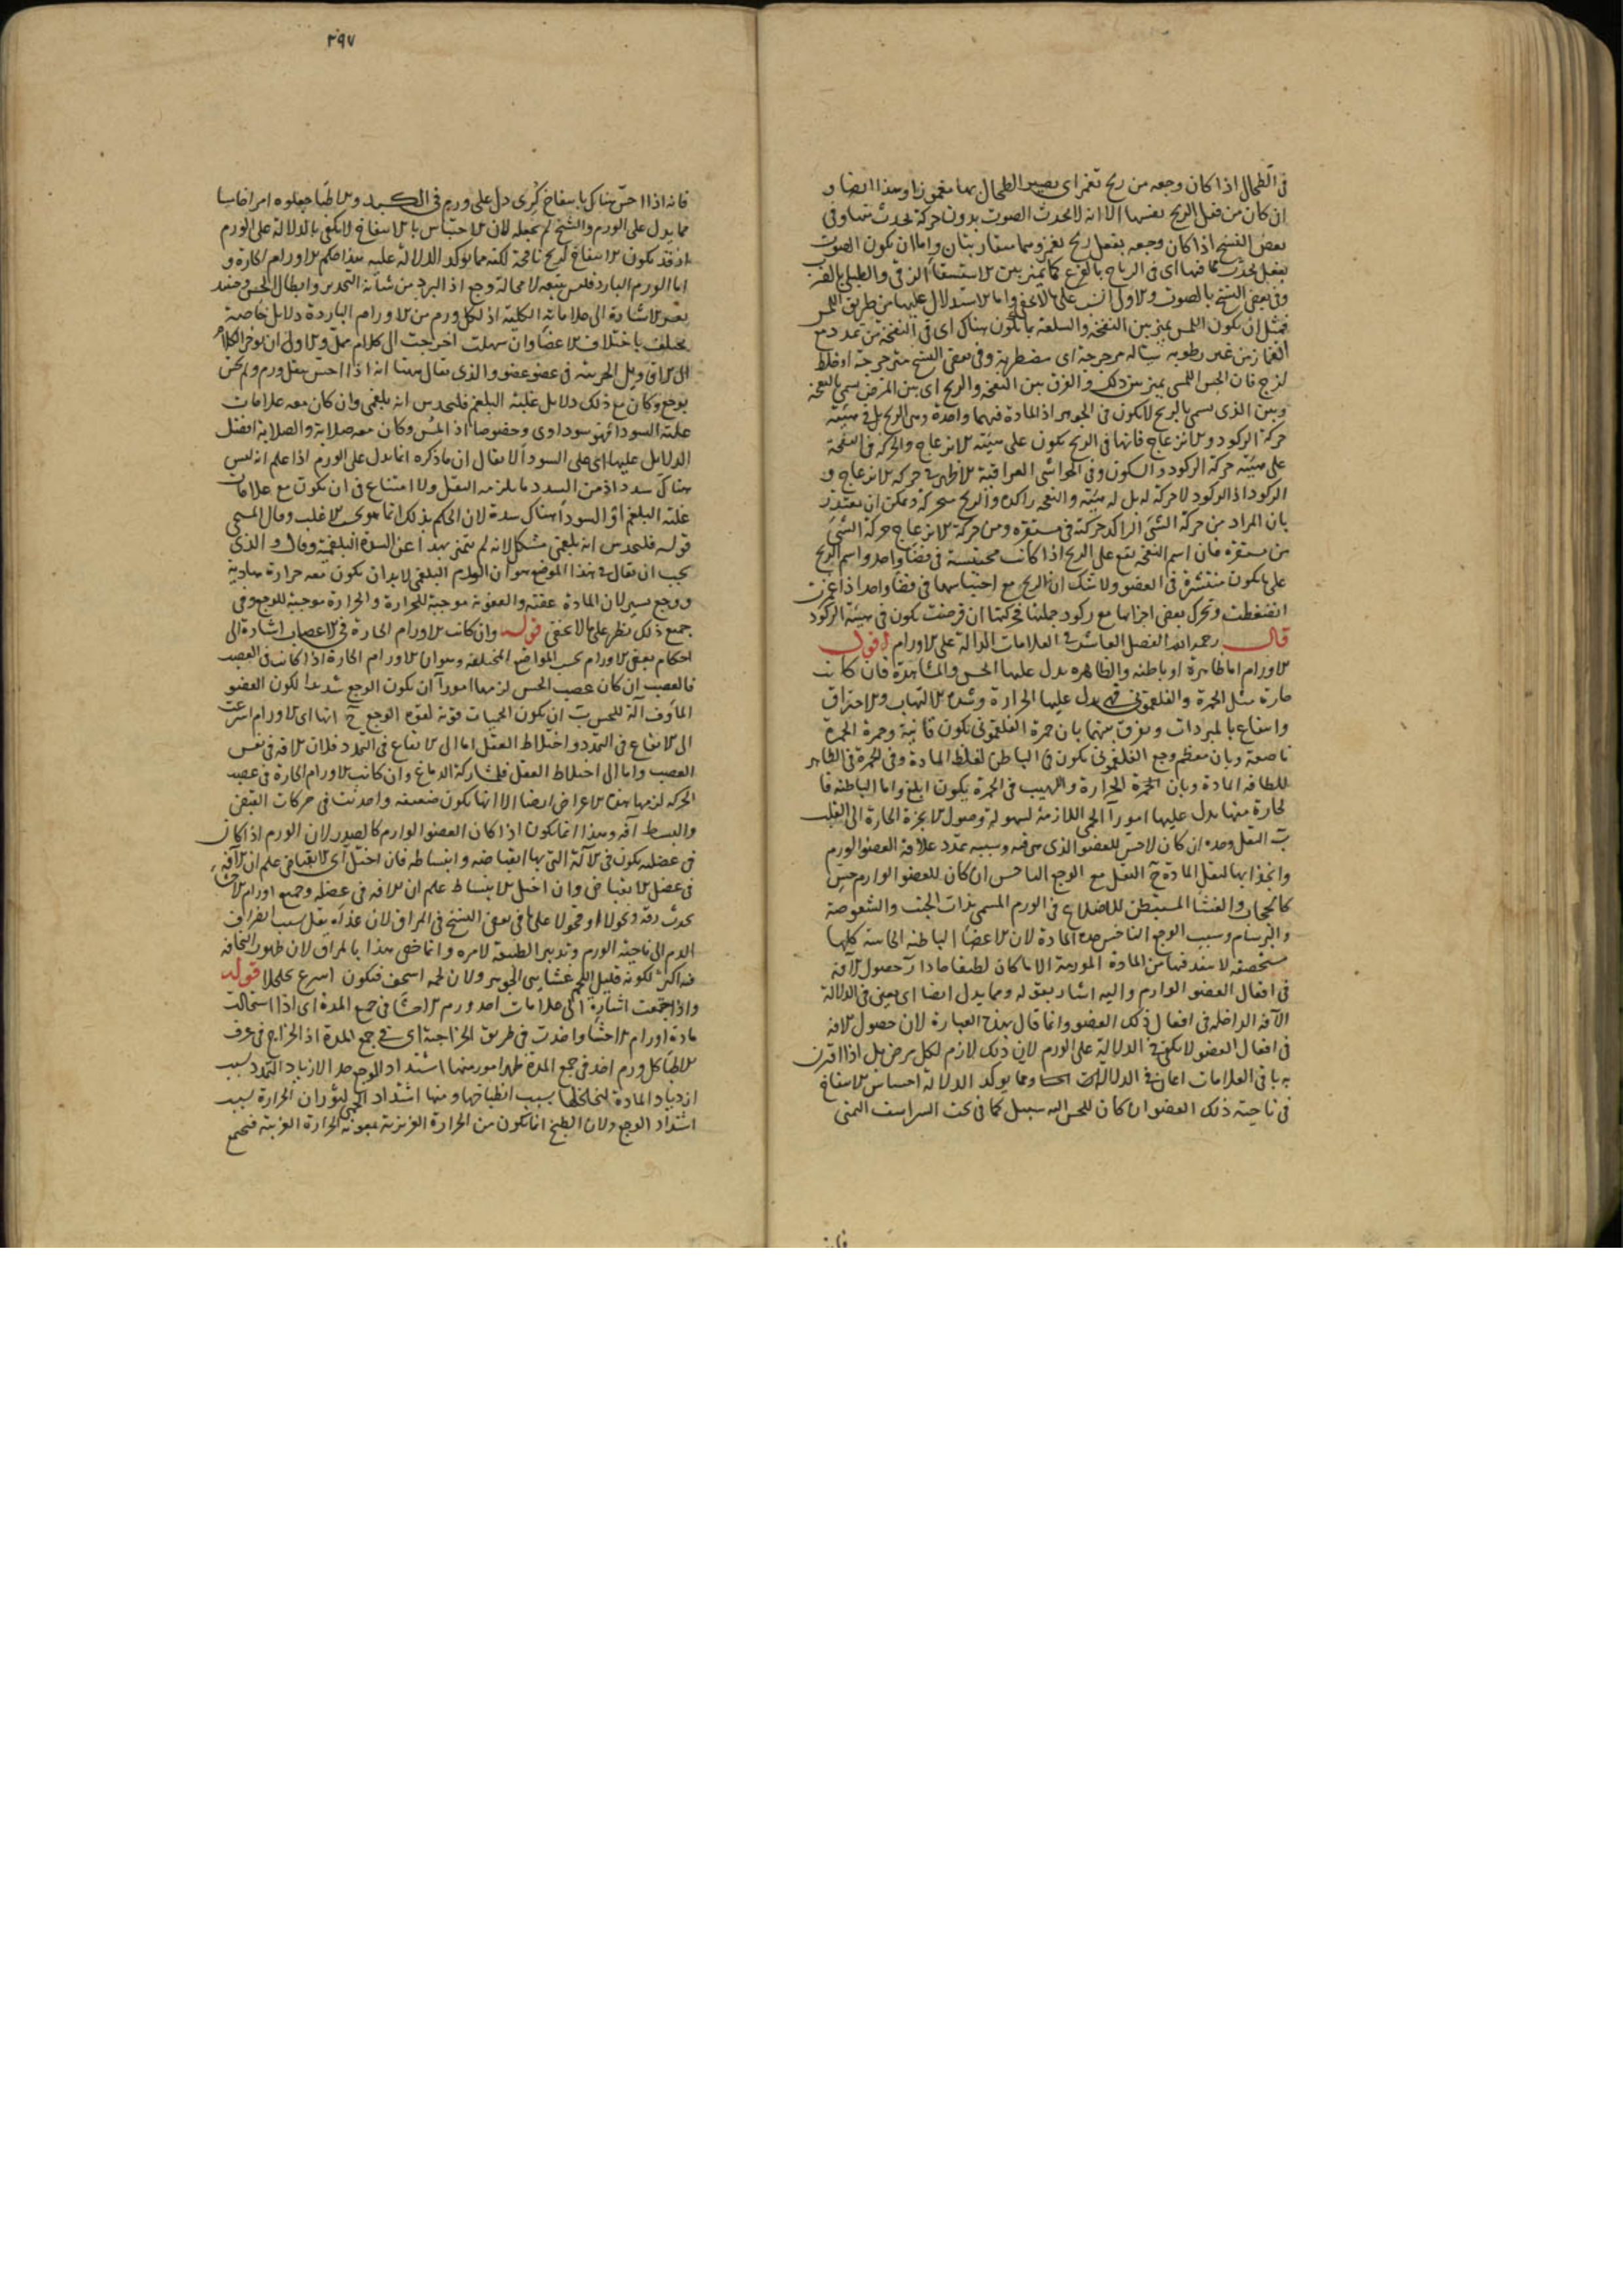 في الطحال اذا كان وجعه من ريح تغمز اي يصير الطحال بها مغموزا وهذا ايضا و
ان كان من قبل الريح نفسها الا انه لا يحدث الصوت بدون حركة تحدث منها وفي
بعض النسخ اذا كان وجعه بفعل ريح بغمز وهما متقاربتان واما ان يكون الصوت
بفعل يحدث فيها اي في الرياح بالقرع كما يميز بين الاستسقاء الزقي والطبلي بالضرب
وفي بعض النسخ بالصوت والاول انسب على ما لا يخفى واما الاستدلال عليها من طريق اللمس
فمثل ان يكون اللمس يميز بين النفخة والسلعة بما يكون هناك اي في النفخة من تمدد مع
انغماز من غير رطوبه سيالة مترجرجة اي مضطربة وفي بعض النسخ مترجرجة او خلط
لزج فان الحس اللمسي يميز بين ذلك والفرق بين النفخة والريح اي بين المرض يسمى بالنفخة
وبين الذي يسمى بالريح لا يكون في الجوهر اذ المادة فيهما واحدة وهي الريح بل في هيئة
حركة الركود والانزعاج فانها في الريح يكون على هيئة الانزعاج والحركة في النفخة
على هيئة حركة الركود والسكون وفي الحواشي العراقية الاظهر في حركة الانزعاج و
الركود اذ الركود لا حركة له بل له هيئة والنفخة راكدة والريح متحركة ويمكن ان يعتذر
بان المراد من حركة الشئ الراكد حركته في مستقره ومن حركة الانزعاج حركة الشئ
من مستقره فان اسم النفخة يقع على الريح اذا كانت محتبسة في فضاء واحد واسم الريح
على ما يكون منتشرة في العضو ولا شك ان الريح مع احتباسها في فضاء واحد اذا غمزت
انضغطت وتحرك بعض اجزائها مع ركود جملتها فحركتها ان فرضت يكون في هيئة الركود
قال رحمه الله الفصل العاشر في العلامات الدالة على الاورام اقول
الاورام اما ظاهرة او باطنه والظاهره يدل عليها الحس والمشاهدة فان كانت
حارة مثل الحمرة والفلغموني فهي يدل عليها الحرارة وشدة الالتهاب والاحتراق
وانتفاع بالمبردات ويفرق بينهما بان حمرة الفلغموني يكون قانية وحمرة الحمرة
ناصعة وبان معظم وجع الفلغموني يكون في الباطن لغلظ المادة وفي الحمرة في الظاهر
للطافة المادة وبان الحمرة الحرارة واللهيب في الحمرة يكون ابلغ واما الباطنه فا
لحارة منها يدل عليها امور آ الحمى اللازمة لسهولة وصول الابخرة الحارة الى القلب
ب الثقل وحده ان كان لا حس للعضو الذي هي فيه وسببه تمدد علاقة العضو الورم
وانجذابها لثقل المادة ج الثقل مع الوجع الناخس ان كان للعضو الوارم حس
كالحجاب والغشاء المستبطن للاضلاع في الورم المسمى بذات الجنب والشوصة
والبرسام وسبب الوجع الناخس حدة المادة لان الاعضاء الباطنه الحاسة كلها
مستحصفة لا ينفذ فيها من المادة المورمة الا ما كان لطيفا حادا د حصول الآفة
في افعال العضو الوارم واليه اشار بقوله ومما يدل ايضا اي يعين في الدلالة
الآفة الداخلة في افعال ذلك العضو وانما قال بهذه العبارة لان حصول الافة
في افعال العضو لا يكفي في الدلالة على الورم لان ذلك لازم لكل مرض بل اذا اقترن
به باقي العلامات اعان في الدلالة ومما يوكد الدلالة احساس الانتفاخ
في ناحية ذلك العضو ان كان للحس اليه سبيل كما في تحت الشراسيف اليمنى
٣٩٧
فانه اذا احس هناك بانتفاخ كرى دل على ورم في الكبد والاطبا جعلوه امرا خاصا
مما يدل على الورم والشيخ لم يجعله لان الاحتباس بالانتفاخ لا يكفي بالدلالة على الورم
اذ قد يكون الانتفاخ لريح نافخة لكنه مما يوكد الدلالة عليه هذا حكم الاورام الحارة و
اما الورم البارد فليس يتبعه لا محالة وجع اذ البرد من شأنه التخدير وابطال الحس وحينئذ
يعسر الاشارة الى علاماته الكلية اذ لكل ورم من الاورام الباردة دلايل خاصة
يختلف باختلاف الاعضاء وان سهلت احوجت الى كلام ممل والاولى ان نوخر الكلام
الى الاقاويل الجزئية في عضو عضو والذي يقال هنا انه اذا احس بثقل ورم ولم يكن
يوجع وكان مع ذلك دلايل غلبة البلغم فليحدس انه بلغمي وان كان معه علامات
غلبة السوداء فهو سوداوي وخصوصا اذا لمس وكان معه صلابة والصلابة افضل
الدلايل عليها اي على السوداء لا يقال ان ما ذكره انما يدل على الورم اذا علم انه ليس
هناك سدد اذ من السدد ما يلزمه الثقل ولا امتناع في ان يكون مع علامات
غلبة البلغم او السوداء هناك سدة لان الحكم بذلك انما هو بحسب الاغلب وقال المسيحي
قوله فليحدس انه بلغمي مشكل لانه لم يتميز بهذا عن السدة البلغمية وقال والذي
يجب ان يقال في هذا الموضع هو ان الورم البلغمي لا بد ان يكون معه حرارة هادية
ووجع يسير لان المادة عفنة والعفونة موجبة للحرارة والحرارة موجبة للوجع وفي
جميع ذلك نظر على ما لا يخفى قوله وان كانت الاورام الحارة في الاعصاب اشارة الى
احكام بعض الاورام بحسب المواضع المختلفة وهو ان الاورام الحارة اذا كانت في العصب
فالعصب ان كان عصب الحس لزمها امور آ ان يكون الوجع شديدا لكون العضو
الماوف آلة للحس ب ان يكون الحميات قوية لقوة الوجع ج انها اي الاورام اسرعت
الى الايقاع في التمدد واختلاط العقل اما الى الايقاع في التمدد فلان الافة في نفس
العصب واما الى اختلاط العقل فلمشاركة الدماغ وان كانت الاورام الحارة في عصب
الحركة لزمها هذه الاعراض ايضا الا انها يكون ضعيفة واحدثت في حركات القبض
والبسط آفة وهذا انما يكون اذا كان العضو الوارم كالصدر لان الورم اذا كان
في عضله يكون في الآلة التي بها انقباضه وانبساطه فان اختل اي الانقباض علم ان الآفة
في عضل الانقباض وان اختل الانبساط علم ان الافة في عضله وجميع اورام الاحشاء
يحدث رقة ونحولا او قحولا على ما في بعض النسخ في المراق لان غذاه يقل بسبب انصراف
الدم الى ناحية الورم وتدبير الطبيعة لامره وانما خص هذا بالمراق لان ظهور النحافة
فيه اكثر لكونه قليل اللحم غشايي الجوهر ولان لحمه اسخف فيكون اسرع تحللا قوله
واذا جمعت اشارة الى علامات احد ورم الاحشاء في جمع المدة اي اذا استحالت
مادة اورام الاحشاء واخذت في طريق الخراجية اي في جمع المدة اذ الخراج في عرف
الاطبا كل ورم اخذ في جمع المدة ظهر امور منها اشتداد الوجع جدا لازدياد التمدد بسبب
ازدياد المادة لتخلخلها بسبب انطباخها ومنها اشتداد الحمى لثوران الحرارة بسبب
اشتداد الوجع ولان الطبخ انما يكون من الحرارة الغريزية بمعونة الحرارة الغريبة فتجمع